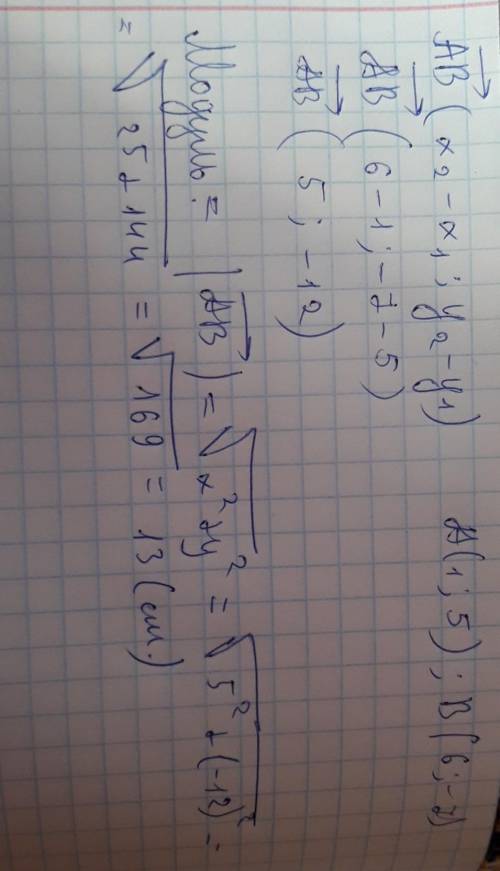 AB (x2-x1; y2-y1) A(1; 5); B(6; -7)
AB (6-1; -7-5)
AB (5; -12)
Модуль: = |AB| = √x²+y² = √5²+(-12)² =
= √25+144 = √169 = 13 (см.)